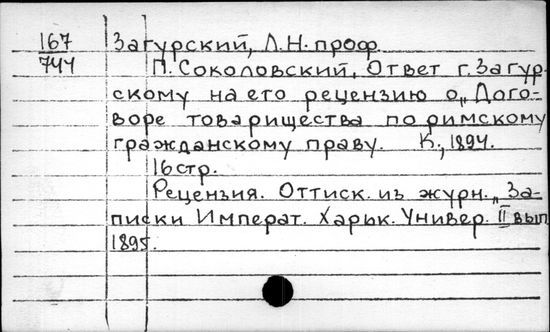 167 Загурский, Л.Н. проф.
744 П. Соколовский, Ответ г. Загур-
скому на его рецензию о „Дого-
воре товарищества по римскому
гражданскому праву. К., 1894.
16 стр.
Рецензия. Оттиск. из журн. „За-
писки Императ. Харьк. Универ. II вып
1895.